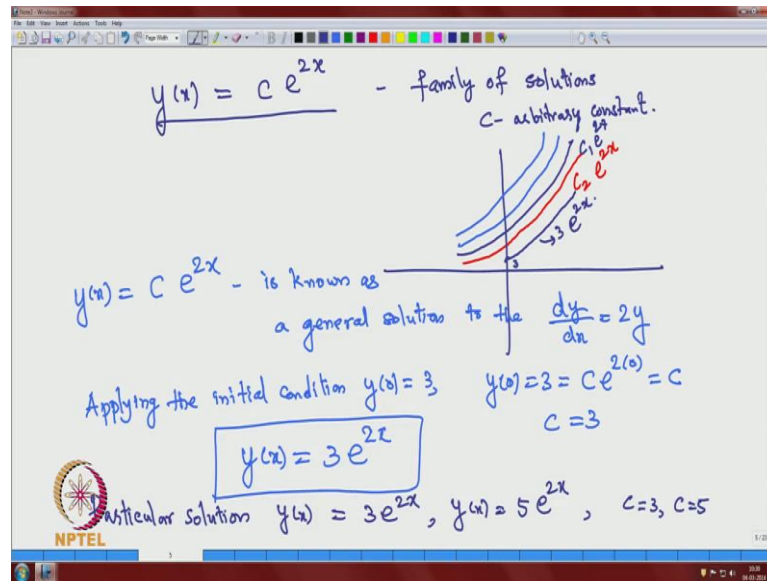 Note1 - Windows Journal
File Edit View Insert Actions Tools Help
Page Width
B I
y(x) = C e^{2x} - family of solutions
C- arbitrary constant.
C₁e^{2x}
C₂ e^{2x}
→3 e^{2x}.
3
y(x) = C e^{2x} - is known as
a general solution to the dy/dx = 2y
Applying the initial condition y(0) = 3, y(0) = 3 = C e^{2(0)} = C
C = 3
y(x) = 3 e^{2x}
Particular solution y(x) = 3e^{2x}, y(x) = 5 e^{2x}, C=3, C=5
NPTEL
5